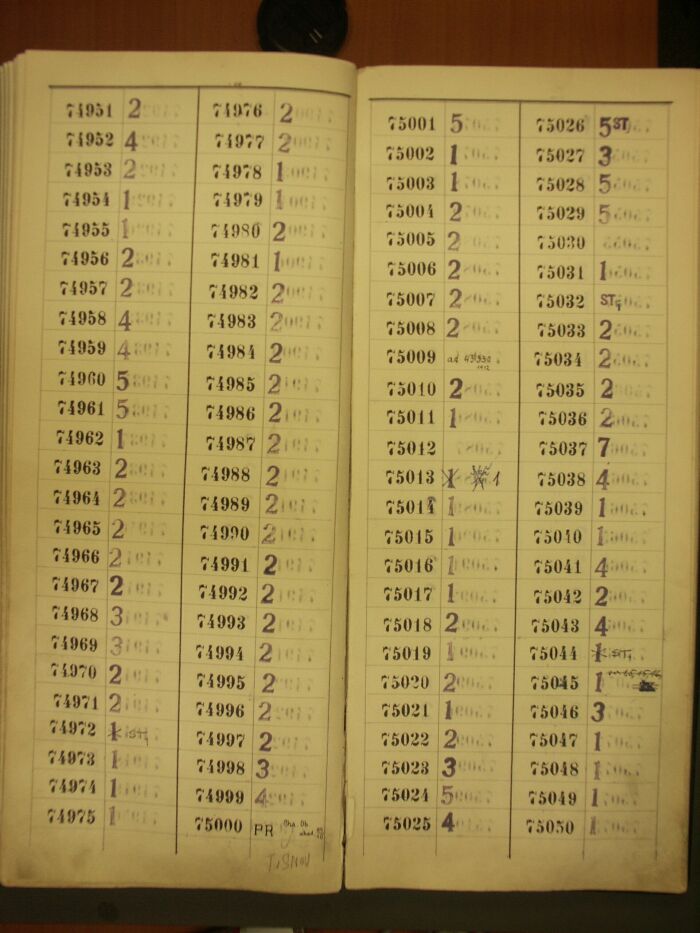 74951 2
74952 4
74953 2
74954 1
74955 1
74956 2
74957 2
74958 4
74959 4
74960 5
74961 5
74962 1
74963 2
74964 2
74965 2
74966 2
74967 2
74968 3
74969 3
74970 2
74971 2
74972 1
74973 1
74974 1
74975 1
74976 2
74977 2
74978 1
74979 1
74980 2
74981 1
74982 2
74983 2
74984 2
74985 2
74986 2
74987 2
74988 2
74989 2
74990 2
74991 2
74992 2
74993 2
74994 2
74995 2
74996 2
74997 2
74998 3
74999 4
75000 PR
75001 5
75002 1
75003 1
75004 2
75005 2
75006 2
75007 2
75008 2
75009 ad
75010 2
75011 1
75012
75013 1 1
75014 1
75015 1
75016 1
75017 1
75018 2
75019 1
75020 2
75021 1
75022 2
75023 3
75024 5
75025 4
75026 5 ST
75027 3
75028 5
75029 5
75030
75031 1
75032 ST
75033 2
75034 2
75035 2
75036 2
75037 7
75038 4
75039 1
75040 1
75041 4
75042 2
75043 4
75044 1
75045 1
75046 3
75047 1
75048 1
75049 1
75050 1